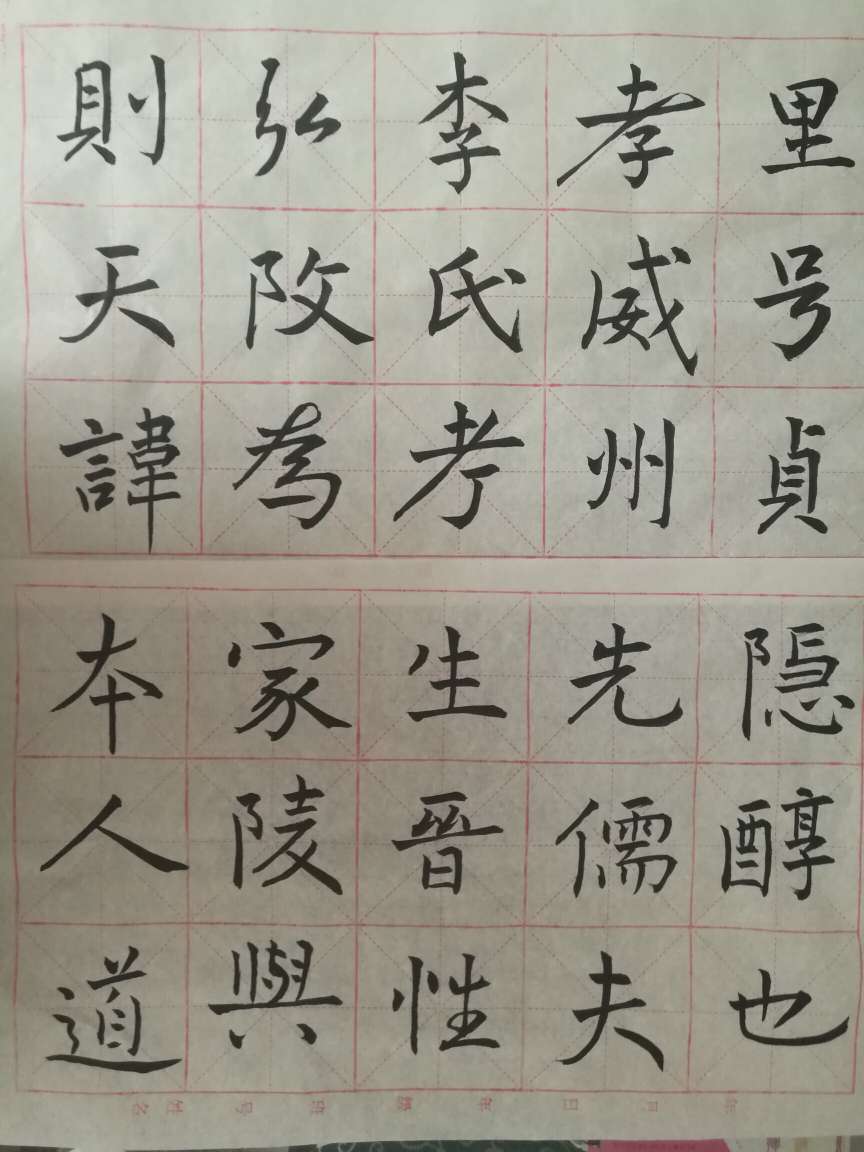 則天諱
弘改為
李氏考
孝威州
里号貞
隐先生家本
醇儒晉陵人
也夫性與道